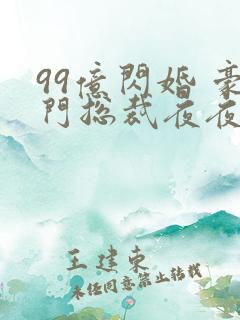 99億閃婚 豪
門總裁夜夜
王建東
未任同意禁止转载